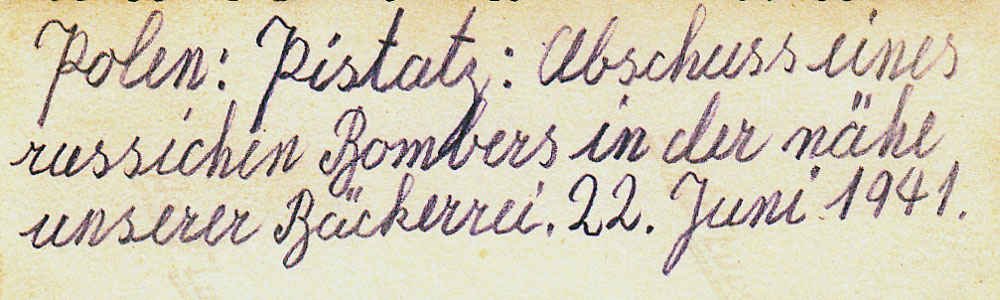 Polen: Pistatz: Abschuss eines
russichen Bombers in der nähe
unserer Bäckerrei. 22. Juni 1941.